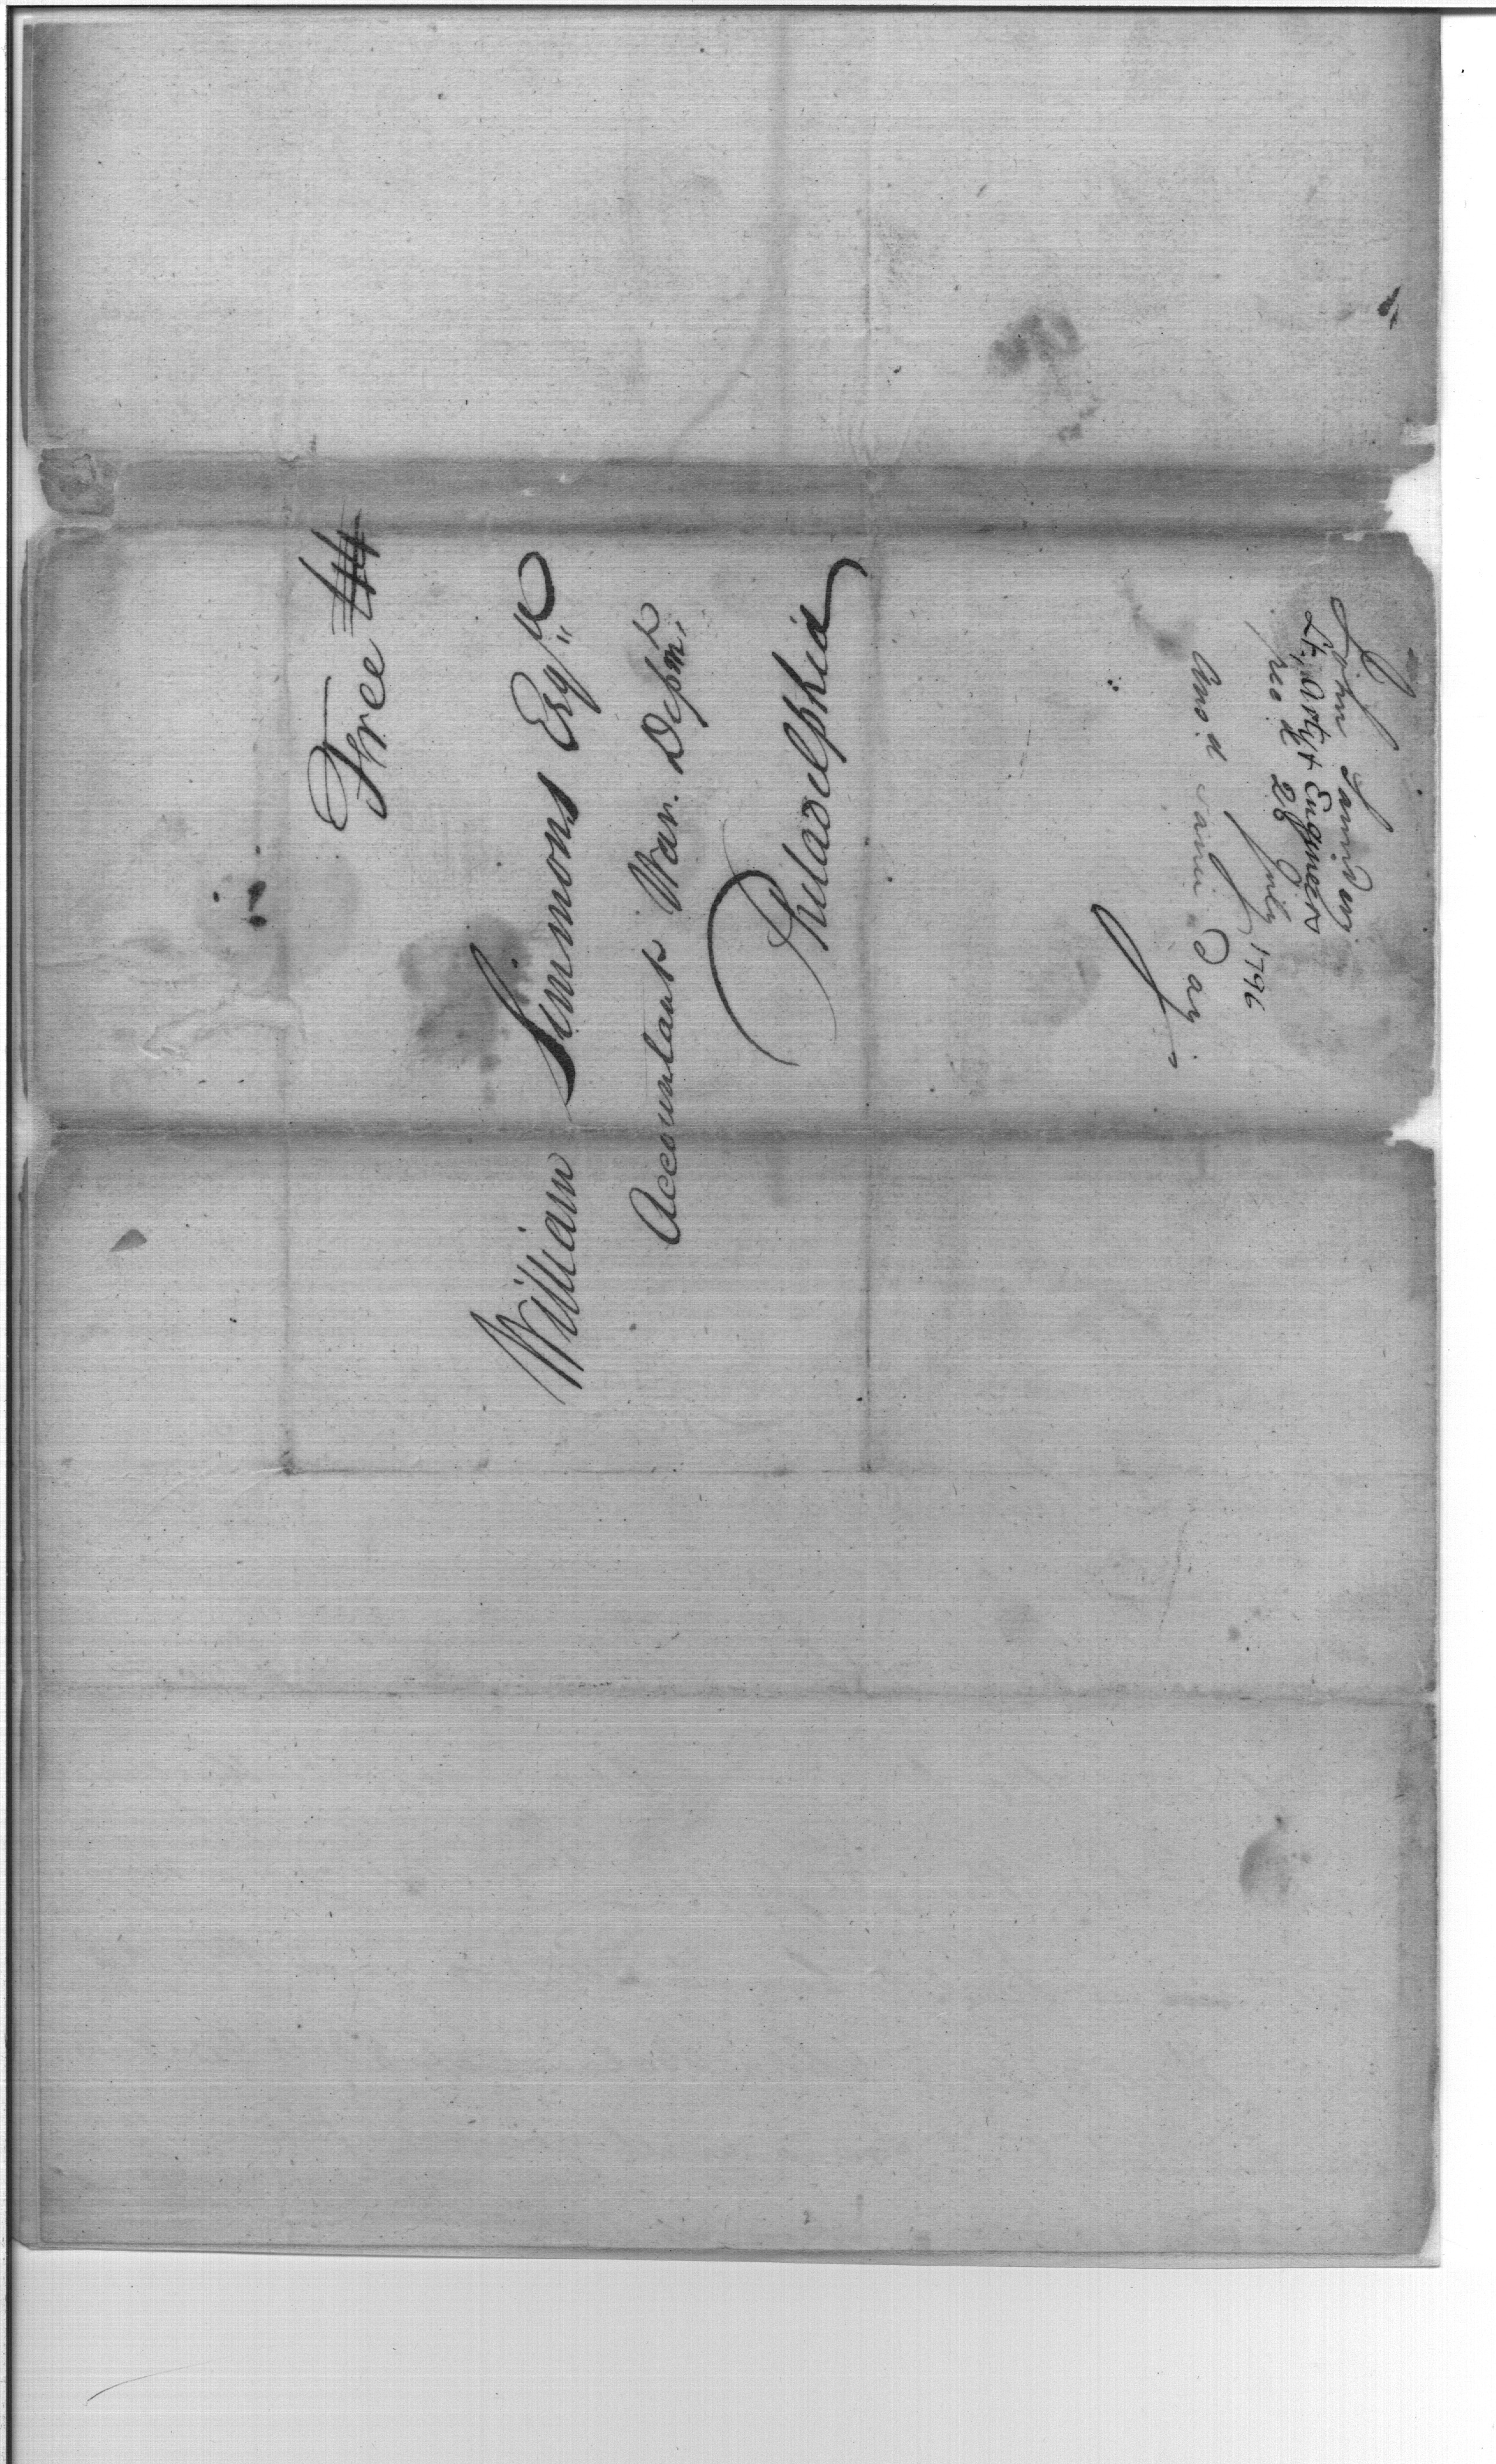 Free 44
William Simmons Esqr"
Accountant War. Depmt,
Philadelphia
John Saunders
Lt, Arty & Engineers
rec d 28 July 1796
Ans.d same Day